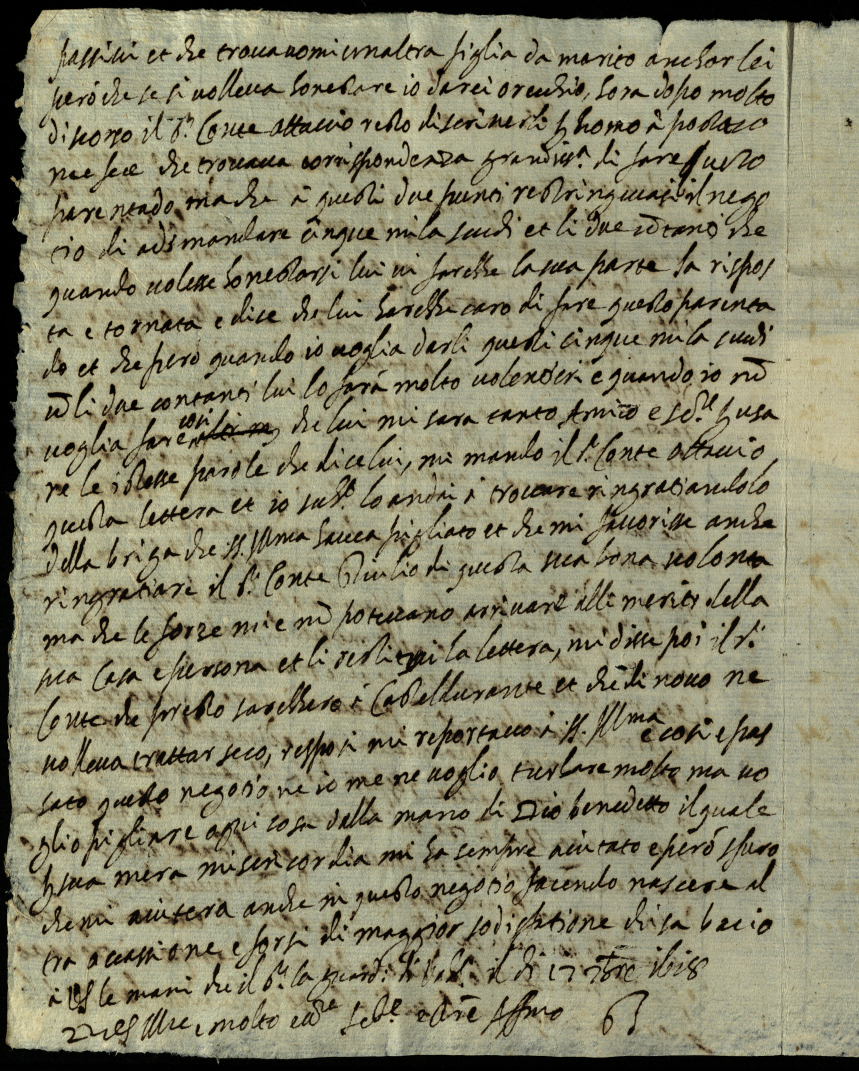 passivi et che trovavomi un altra figlia da marito anchor lei
però che se si volleva honestare io darei orecchio, hora dopo molto
discorso il S.r Conte Attavio restò di scriverli p homo à posta
ne fece che trovava corrispondenza grandiss.a di fare questo
parentado ma che à questi due punti restringevasi il nego
tio di adimandare cinque mila scudi et li due contanti che
quando volesse honestarsi lui vi farebbe la sua parte la rispos
ta e tornata e dice che lui harebbe caro di fare questo parenta
do et che però quando io voglia darli questi cinque mila scudi
cō li due contanti lui lo farà molto volentieri e quando io nō
voglia fare così che lui mi sara tanto Amico e p usa
re le istesse parole che dice lui, mi mando il S. Conte Attavio
questa lettera et io sub.o lo andai à trovare ringratiandolo
della briga che SS. Illma haveva pigliato et che mi favorisse anche
ringratiare il S. Conte Giulio di questa sua bona volonta
ma che le forze mie nō potevano arrivare alli meriti della
sua Casa e persona et li restitui la lettera, mi disse poi il S.
Conte che presto sarebbero à Casteldurante et che di novo ne
volleva trattar seco, resposi mi reportavo à SS. Illma e così e pas
sato questo negotio ne io me ne voglio turbare molto ma vo
glio pigliare ogni cosa dalla mano di Dio benedetto il quale
p sua mera misericordia mi ha sempre aiutato e però spero
che mi aiutera anche in questo negotio facendo nascere al
tra occassione e forsi di maggior sodisfatione di sa bacio
à VS le mani che il S. la guardi di il di 17 7bre 1618
Di VS Illre e molto Affmo 63